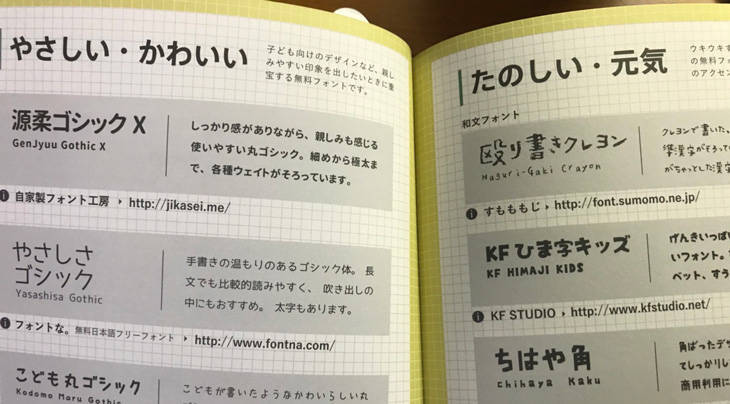 やさしい・かわいい
子ども向けのデザインなど、親し
みやすい印象を出したいときに重
宝する無料フォントです。
源柔ゴシック X
GenJyuu Gothic X
しっかり感がありながら、親しみも感じる
使いやすい丸ゴシック。細めから極太ま
で、各種ウェイトがそろっています。
自家製フォント工房 ▸ http://jikasei.me/
やさしさ
ゴシック
Yasashisa Gothic
手書きの温もりのあるゴシック体。長
文でも比較的読みやすく、吹き出しの
中にもおすすめ。太字もあります。
フォントな。無料日本語フリーフォント ▸ http://www.fontna.com/
こども丸ゴシック
Kodomo Maru Gothic
こどもが書いたようなかわいらしい丸
たのしい・元気
ウキウキす
の無料フォ
のアクセン
和文フォント
殴り書きクレヨン
Naguri-Gaki Crayon
クレヨンで書いた、
準漢字がそろって
がちゃっとした漢字
すもももじ ▸ http://font.sumomo.ne.jp/
KFひま字キッズ
KF HIMAJI KIDS
げんきいっぱい
いフォント。
ベット、すう
KF STUDIO ▸ http://www.kfstudio.net/
ちはや角
Chihaya Kaku
角ばったデザ
てしっかりし
商用利用に